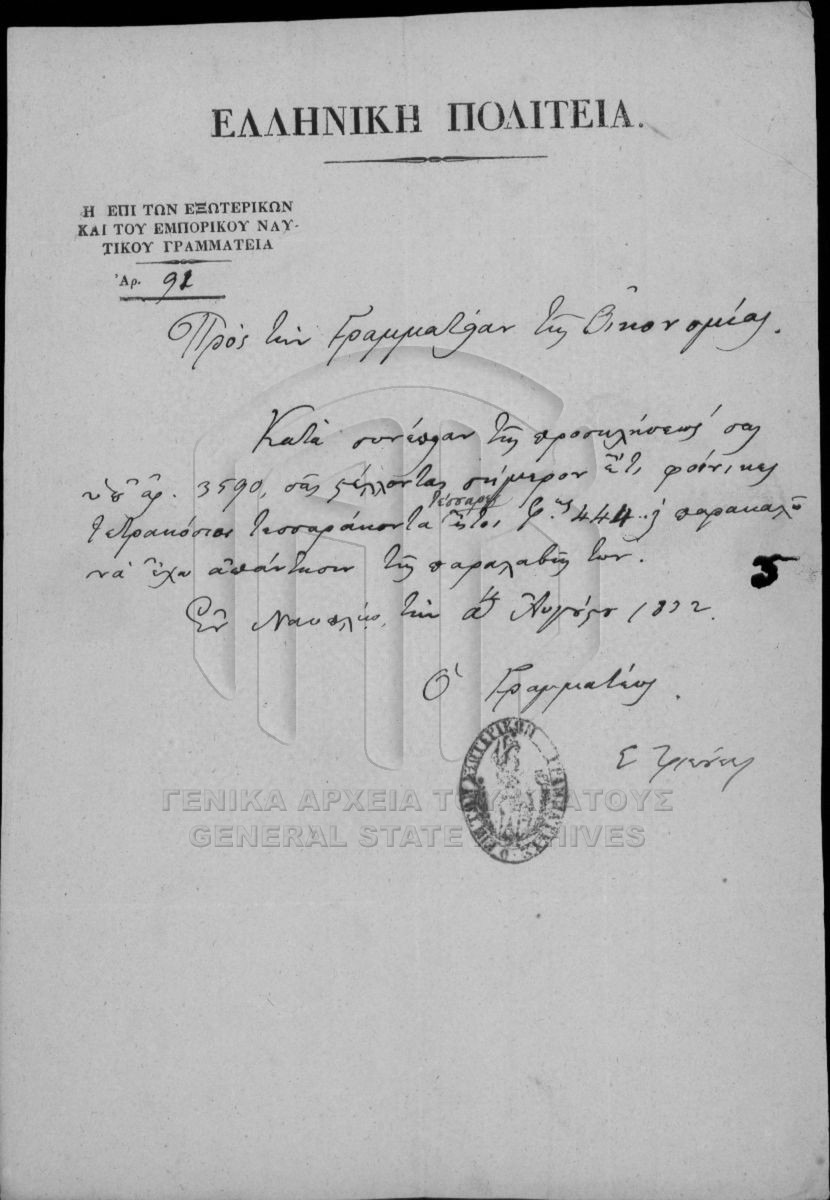 ΕΛΛΗΝΙΚΗ ΠΟΛΙΤΕΙΑ.
Η ΕΠΙ ΤΩΝ ΕΞΩΤΕΡΙΚΩΝ
ΚΑΙ ΤΟΥ ΕΜΠΟΡΙΚΟΥ ΝΑΥ-
ΤΙΚΟΥ ΓΡΑΜΜΑΤΕΙΑ
Ἀρ. 91
Πρὸς τὴν Γραμματείαν τῆς Οἰκονομίας.
Κατὰ συνέπειαν τῆς προσκλήσεώς σας
ὑπ' ἀρ. 3590, σᾶς στέλλονται σήμερον φοίνικες
τετρακόσιοι τεσσαράκοντα τέσσαρες ἤτοι 444 παρακαλῶ
νὰ ἔχω ἀπάντησιν τῆς παραλαβῆς των.
5
Ἐν Ναυπλίῳ, τὴν Αὐγούστου 1832.
Ὁ Γραμματεὺς.
ΓΕΝΙΚΑ ΑΡΧΕΙΑ ΤΟΥ ΚΡΑΤΟΥΣ
GENERAL STATE ARCHIVES